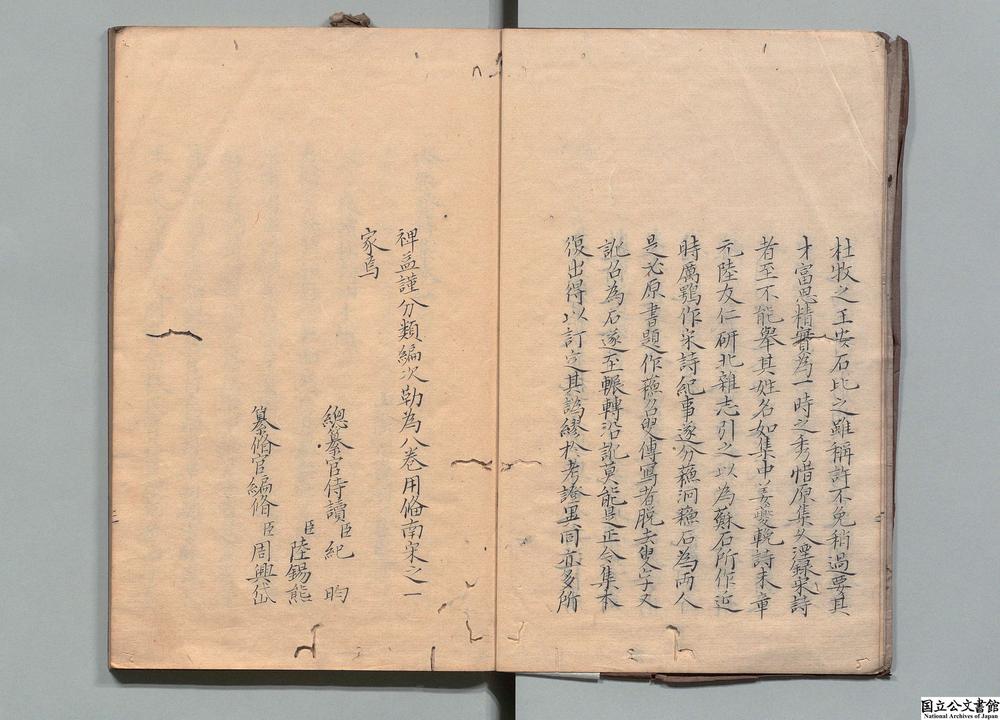 杜牧之王安石比之雖稱許不免稍過要其
才富思精實為一時之秀惜原集久湮錄宋詩
者至不能舉其姓名如集中姜夔輓詩末章
元陸友仁研北雜志引之以為蘇石所作近
時厲鶚作宋詩紀事遂分蘇泂蘇石為兩人
是必原書題作蘇召叟傳寫者脫去叟字又
訛召為石遂至輾轉沿訛莫能是正今集本
復出得以訂定其譌繆於考證異同亦多所
裨益謹分類編次勒為八卷用備南宋之一
家焉
總纂官侍讀臣紀昀
臣陸錫熊
纂脩官編脩臣周興岱
国立公文書館
National Archives of Japan